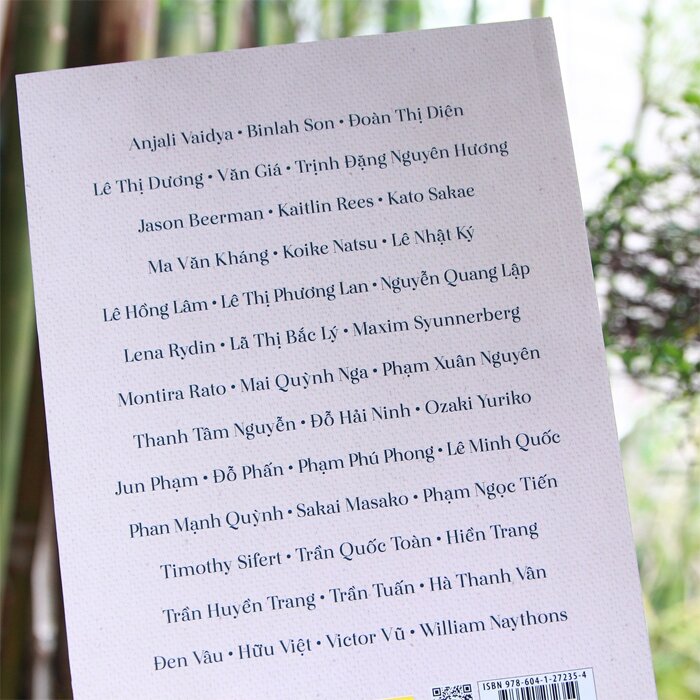 Anjali Vaidya • Binlah Son • Đoàn Thị Diên
Lê Thị Dương • Văn Giá • Trịnh Đặng Nguyên Hương
Jason Beerman • Kaitlin Rees • Kato Sakae
Ma Văn Kháng • Koike Natsu • Lê Nhật Ký
Lê Hồng Lâm • Lê Thị Phương Lan • Nguyễn Quang Lập
Lena Rydin • Lã Thị Bắc Lý • Maxim Syunnerberg
Montira Rato • Mai Quỳnh Nga • Phạm Xuân Nguyên
Thanh Tâm Nguyễn • Đỗ Hải Ninh • Ozaki Yuriko
Jun Phạm • Đỗ Phấn • Phạm Phú Phong • Lê Minh Quốc
Phan Mạnh Quỳnh • Sakai Masako • Phạm Ngọc Tiến
Timothy Sifert • Trần Quốc Toàn • Hiền Trang
Trần Huyền Trang • Trần Tuấn • Hà Thanh Vân
Đen Vâu • Hữu Việt • Victor Vũ • William Naythons
ISBN 978-604-1-27235-4